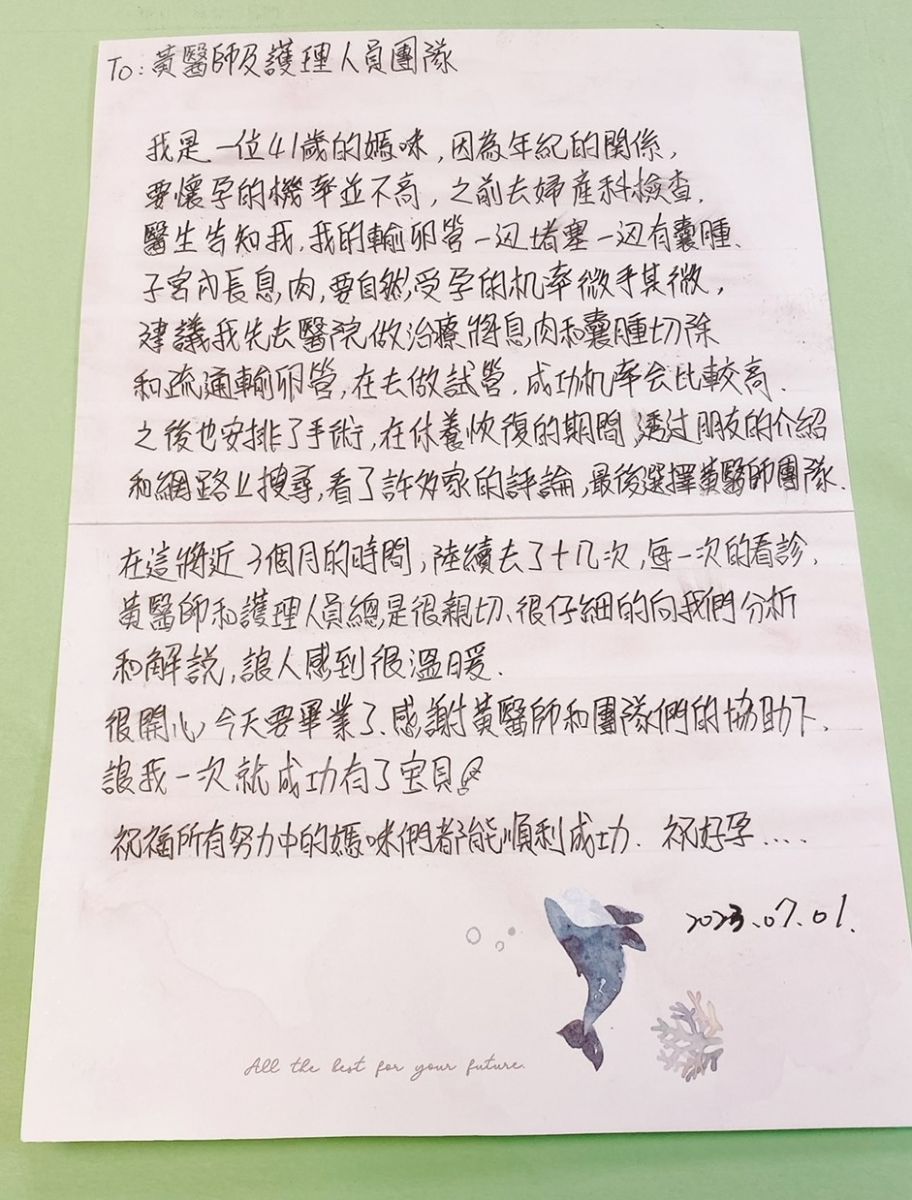 To：黃醫師及護理人員團隊
我是一位41歲的媽咪，因為年紀的關係，
要懷孕的機率並不高，之前去婦產科檢查，
醫生告知我，我的輸卵管一边堵塞一边有囊腫、
子宮內長息肉，要自然受孕的机率微乎其微，
建議我先去醫院做治療將息肉和囊腫切除
和疏通輸卵管，在去做試管，成功机率会比較高．
之後也安排了手術，在休養恢復的期間 透过朋友的介紹
和網路上搜尋，看了許多家的評論，最後選擇黃醫師團隊．
在這將近3個月的時間，陸續去了十几次，每一次的看診，
黃醫師和護理人員總是很親切、很仔細的向我們分析
和解說，讓人感到很溫暖．
很開心今天要畢業了、感謝黃醫師和團隊們的協助下、
讓我一次就成功有了宝貝
祝福所有努力中的媽咪們都能順利成功． 祝好孕．．．．
2023.07.01.
All the best for your future.